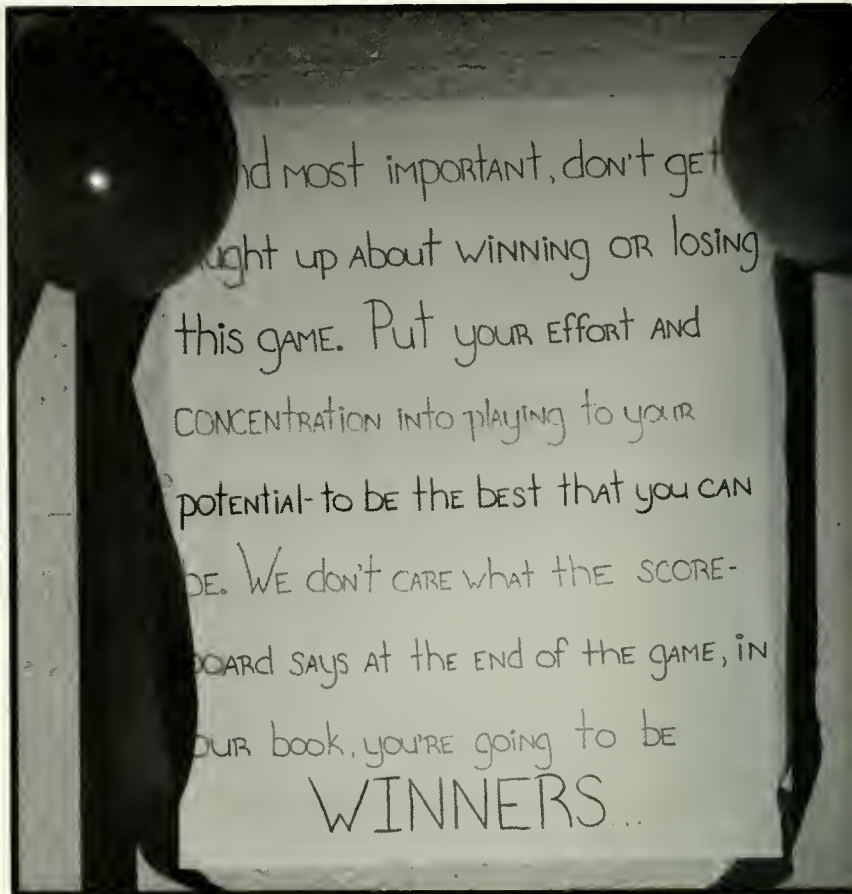 nd most important, don't get
ught up About winning or losing
this game. Put your effort and
concentration into playing to your
potential- to be the best that you can
be. We don't care what the score-
board says at the end of the game, in
our book, you're going to be
WINNERS...